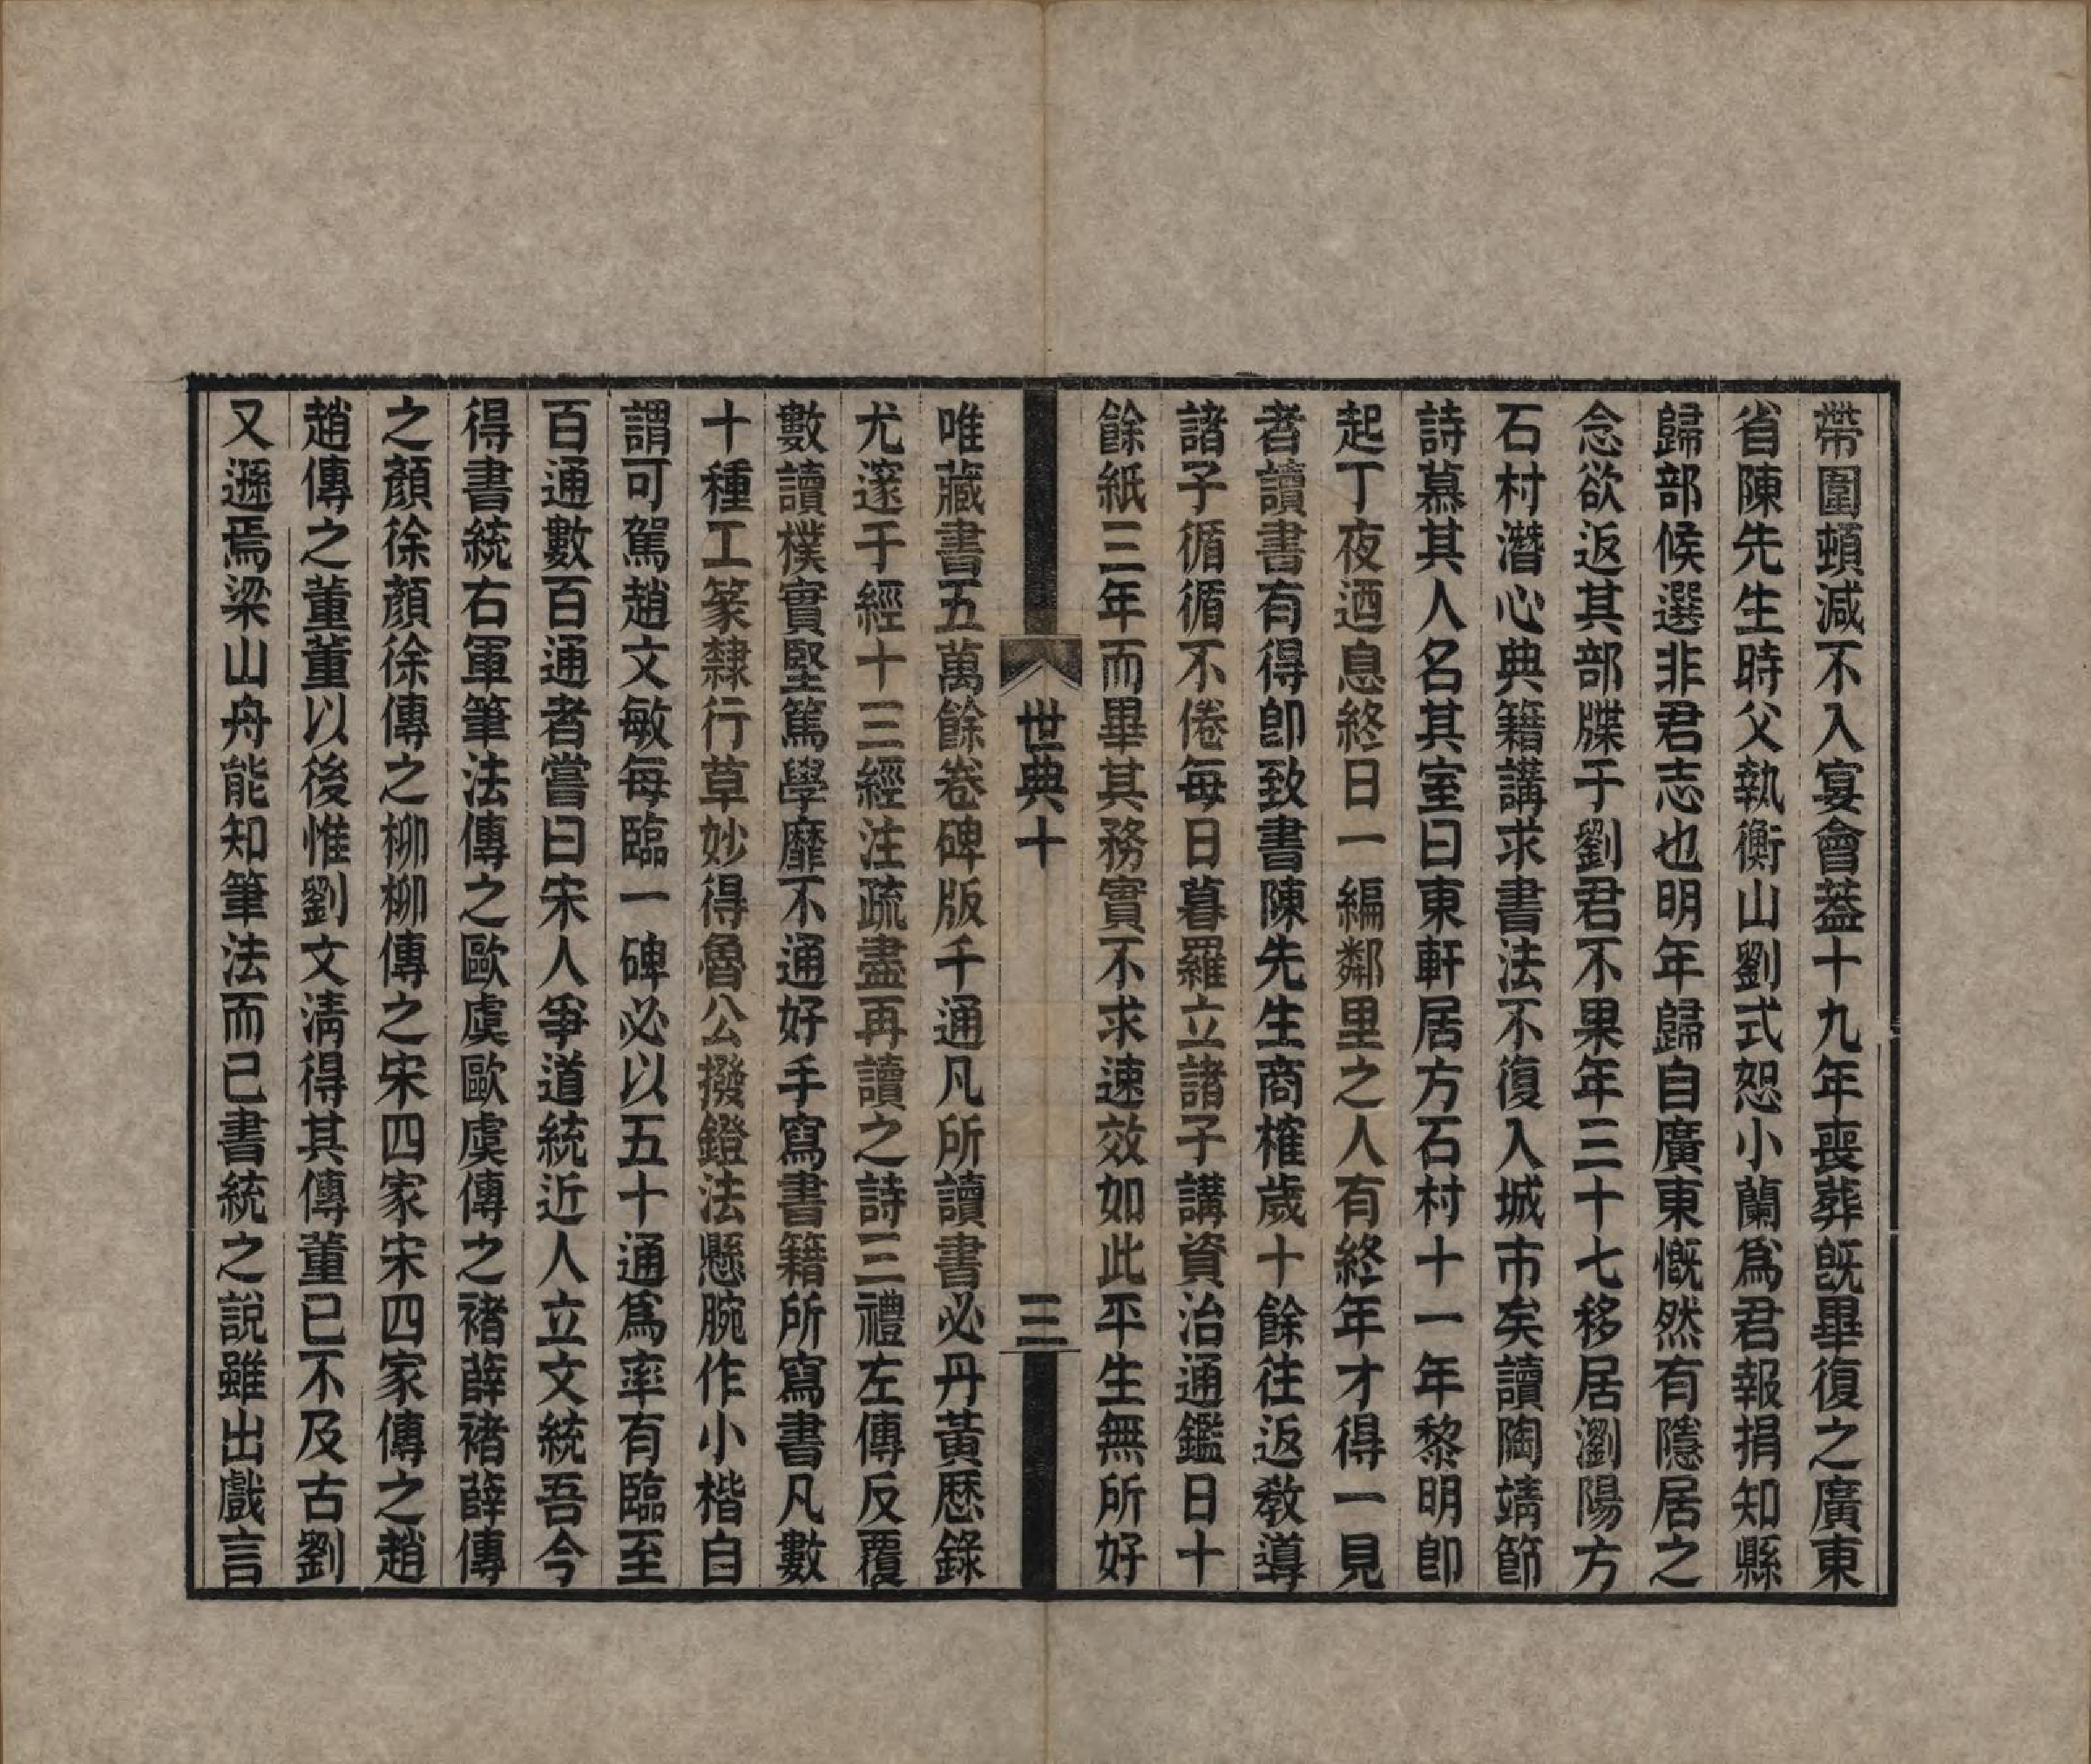 帶圍頓減不入宴會葢十九年喪葬旣畢復之廣東
省陳先生時父執衡山劉式恕小蘭爲君報捐知縣
歸部候選非君志也明年歸自廣東慨然有隱居之
念欲返其部牒于劉君不果年三十七移居瀏陽方
石村潛心典籍講求書法不復入城市矣讀陶靖節
詩慕其人名其室曰東軒居方石村十一年黎明卽
起丁夜迺息終日一編鄰里之人有終年才得一見
者讀書有得卽致書陳先生商榷歲十餘往返敎導
諸子循循不倦每日暮羅立諸子講資治通鑑日十
餘紙三年而畢其務實不求速效如此平生無所好
世典十
三
唯藏書五萬餘卷碑版千通凡所讀書必丹黃歷錄
尤邃于經十三經注疏盡再讀之詩三禮左傳反覆
數讀樸實堅篤學靡不通好手寫書籍所寫書凡數
十種工篆隸行草妙得魯公撥鐙法懸腕作小楷自
謂可駕趙文敏每臨一碑必以五十通爲率有臨至
百通數百通者嘗曰宋人爭道統近人立文統吾今
得書統右軍筆法傳之歐虞歐虞傳之褚薛褚薛傳
之顏徐顏徐傳之柳柳傳之宋四家宋四家傳之趙
趙傳之董董以後惟劉文淸得其傳董已不及古劉
又遜焉梁山舟能知筆法而已書統之說雖出戲言